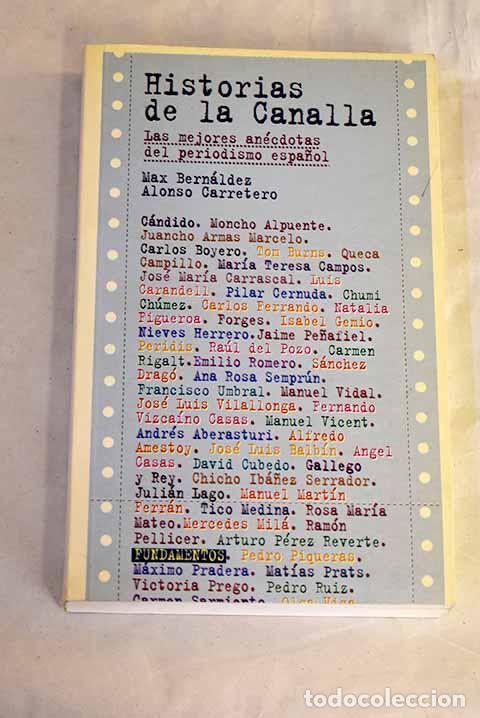 Historias
de la Canalla
Las mejores anécdotas
del periodismo español
Max Bernáldez
Alonso Carretero
Cándido. Moncho Alpuente.
Juancho Armas Marcelo.
Carlos Boyero. Tom Burns. Queca
Campillo. María Teresa Campos.
José María Carrascal. Luis
Carandell. Pilar Cernuda. Chumi
Chúmez. Carlos Ferrando. Natalia
Figueroa. Forges. Isabel Gemio.
Nieves Herrero. Jaime Peñafiel.
Peridis. Raúl del Pozo. Carmen
Rigalt. Emilio Romero. Sánchez
Dragó. Ana Rosa Semprún.
Francisco Umbral. Manuel Vidal.
José Luis Vilallonga. Fernando
Vizcaíno Casas. Manuel Vicent.
Andrés Aberasturi. Alfredo
Amestoy. José Luis Balbín. Angel
Casas. David Cubedo. Gallego
y Rey. Chicho Ibáñez Serrador.
Julián Lago. Manuel Martín
Ferrán. Tico Medina. Rosa María
Mateo. Mercedes Milá. Ramón
Pellicer. Arturo Pérez Reverte.
FUNDAMENTOS. Pedro Piqueras.
Máximo Pradera. Matías Prats.
Victoria Prego. Pedro Ruiz.
Carmen Sarmiento. Olga Viza
todocoleccion